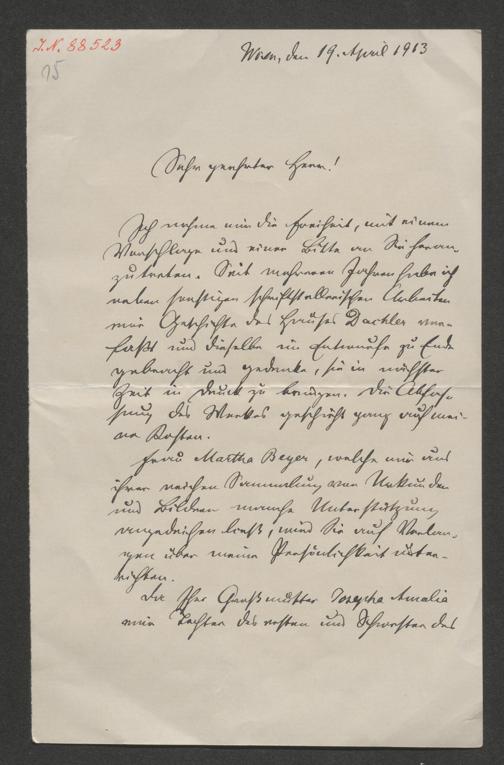 I.N. 88523
15
Wien, den 19. April 1913
Sehr geehrter Herr!
Ich nehme mir die Freiheit, mit einem
Vorschlage und einer Bitte an Sie heran-
zutreten. Seit mehreren Jahren habe ich
neben sonstigen schriftstellerischen Arbeiten
eine Geschichte des Hauses Dachler ver-
faßt und dieselbe im Entwurfe zu Ende
gebracht und gedenke, sie in nächster
Zeit in Druck zu bringen. Die Abfas-
sung des Werkes geschieht ganz auf mei-
ne Kosten.
Frau Martha Beyer, welche mir aus
ihrer reichen Sammlung von Urkunden
und Bildern manche Unterstützung
angedeihen ließ, wird Sie auf Verlan-
gen über meine Persönlichkeit unter-
richten.
Da Ihre Großmutter Josepha Amalia
eine Tochter des ersten und Schwester des